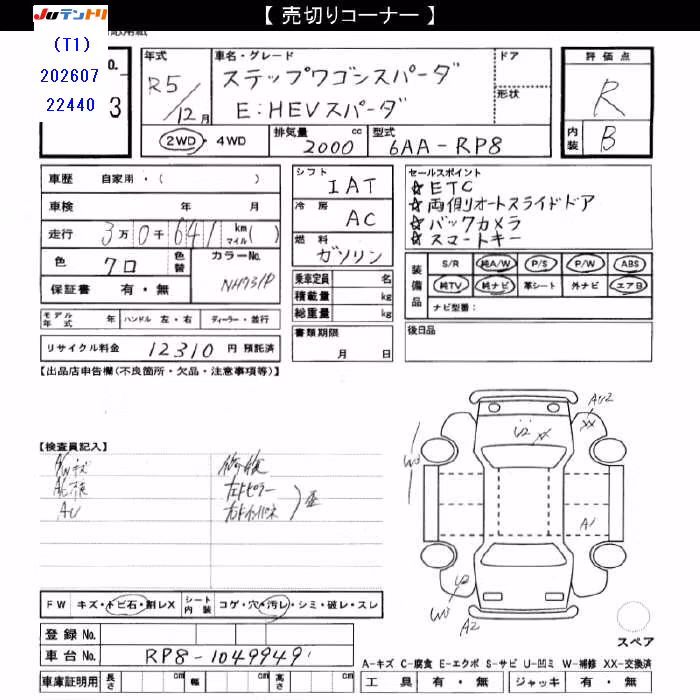 【売切りコーナー】
JUテントリ
(T1)
202607
22440
3
年式
R5/12月
車名・グレード
ステップワゴンスパーダ
E:HEVスパーダ
ドア
形状
評価点
R
内装
B
2WD・4WD
排気量
2000 cc
型式
6AA-RP8
車歴 自家用・( )
車検 年 月
走行 3万0千641 km マイル( )
色 クロ
色替
カラーNo.
NH731P
保証書 有・無
シフト
IAT
冷房
AC
燃料
ガソリン
乗車定員 名
積載量 kg
総重量 kg
セールスポイント
☆ETC
☆両側オートスライドドア
☆バックカメラ
☆スマートキー
装備品
S/R 純A/W P/S P/W ABS
純TV 純ナビ 革シート 外ナビ エアB
ナビ型番:
モデル年式 年
ハンドル 左・右
ディーラー・並行
書類期限
月 日
後日品
リサイクル料金 12310 円 預託済
【出品店申告欄(不良箇所・欠品・注意事項等)】
【検査員記入】
AU2
XX
U2
XX
W3
A1
U2
W3
A2
FW キズ・トビ石・割レX
シート内装 コゲ・穴・汚レ・シミ・破レ・スレ
スペア
登録No.
車台No. RP8-1049949
A-キズ C-腐食 E-エクボ S-サビ U-凹ミ W-補修 XX-交換済
車庫証明用 長さ cm 幅 cm 高さ cm
工具 有・無 ジャッキ 有・無